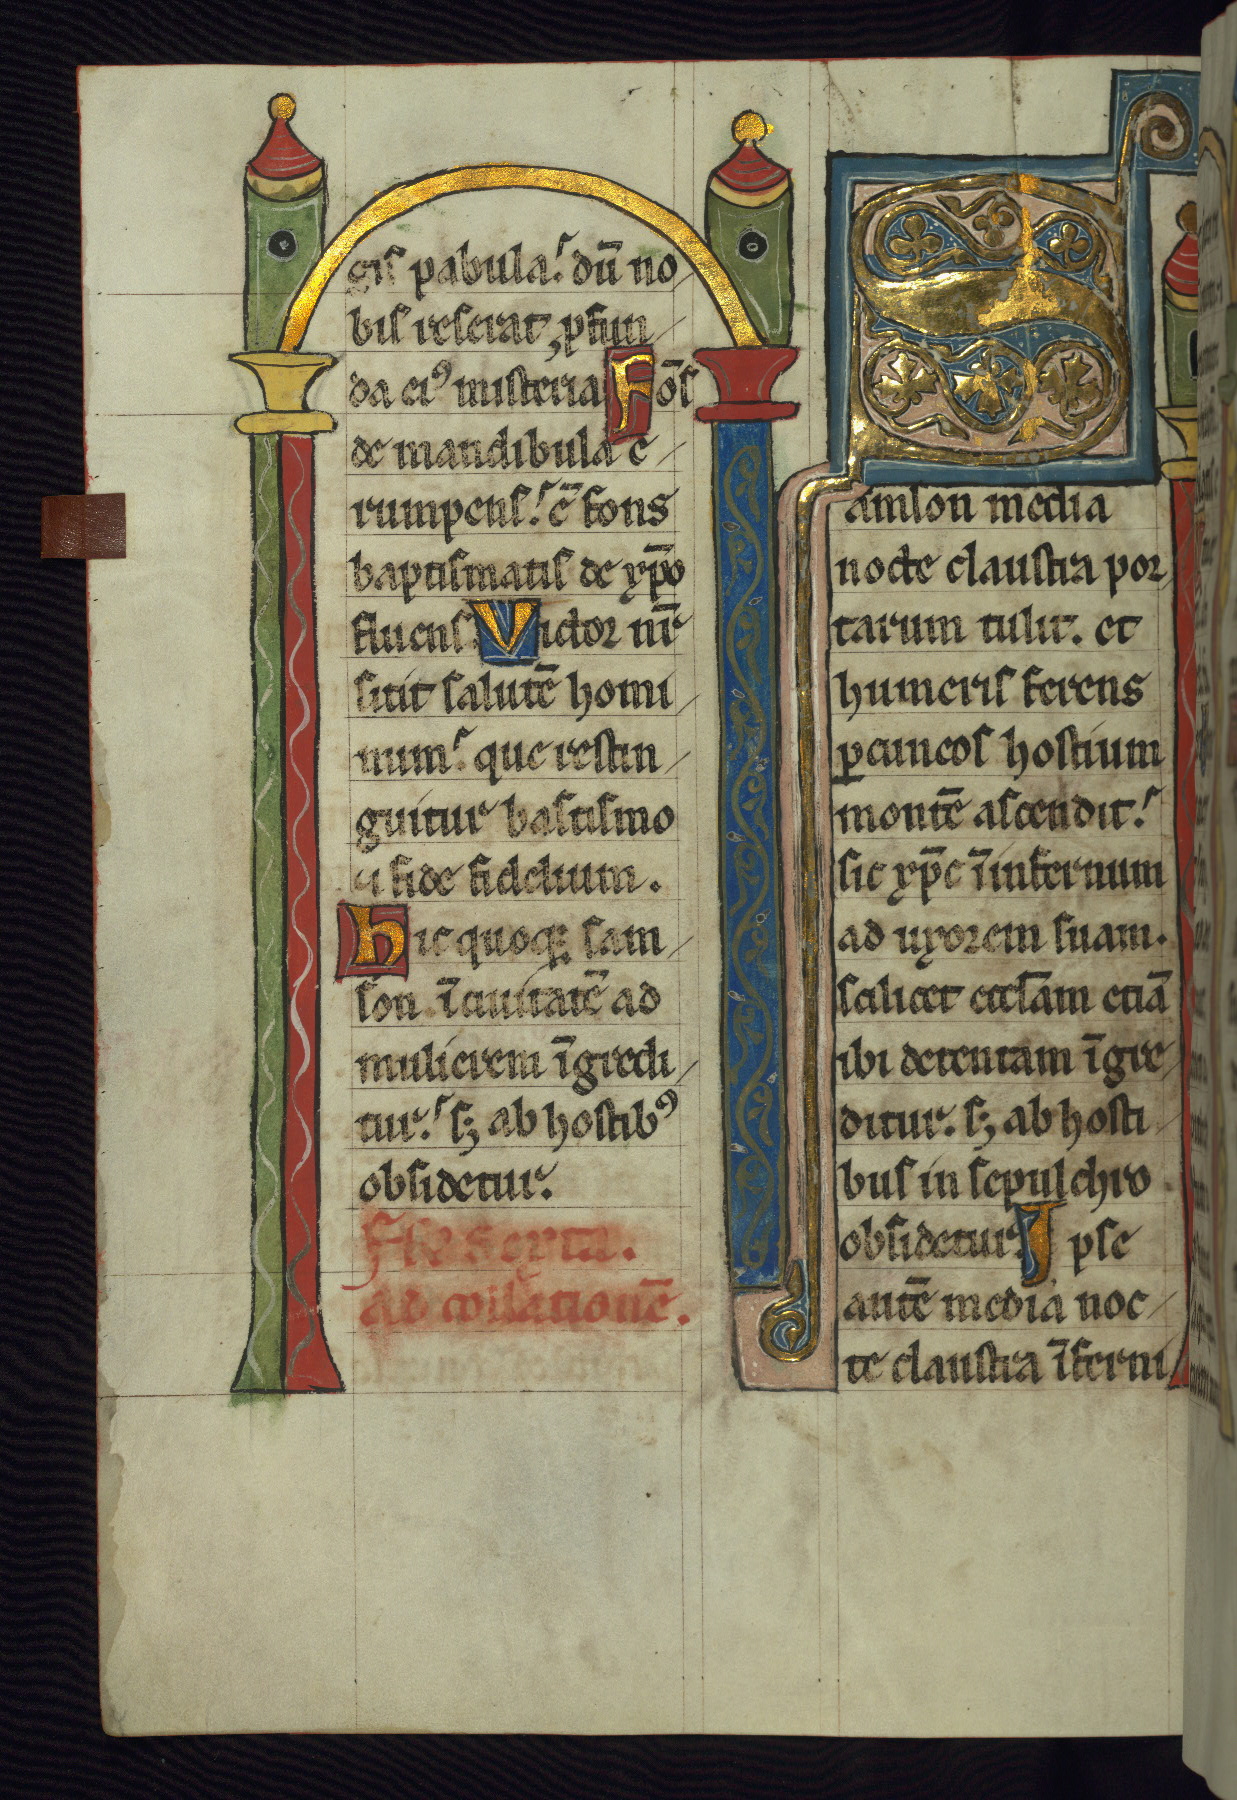 gis pabula. dū no
bis reserat, pfun
da ei⁹ misteria Fōs
de mandibula e
rumpens. ē fons
baptismatis de xp̄o
fluens Victor nr̄
sitit salutē homi
num. que restin
guitur bastismo
fide fidelium.
Hic quoq; sam
son ī ciuitatē ad
mulierem īgredi
tur. s; ab hostib⁹
obsidetur.
ad collationē.
Samson media
nocte claustra por
tarum tulit. et
humeris ferens
ꝑ cuneos hostium
montē ascendit.
sic xp̄c ī infernum
ad uxorem suam.
scilicet eccl̄am etiā
ibi detentam īgre
ditur. s; ab hosti
bus in sepulchro
obsidetur. Ipse
autē media noc
te claustra īferni